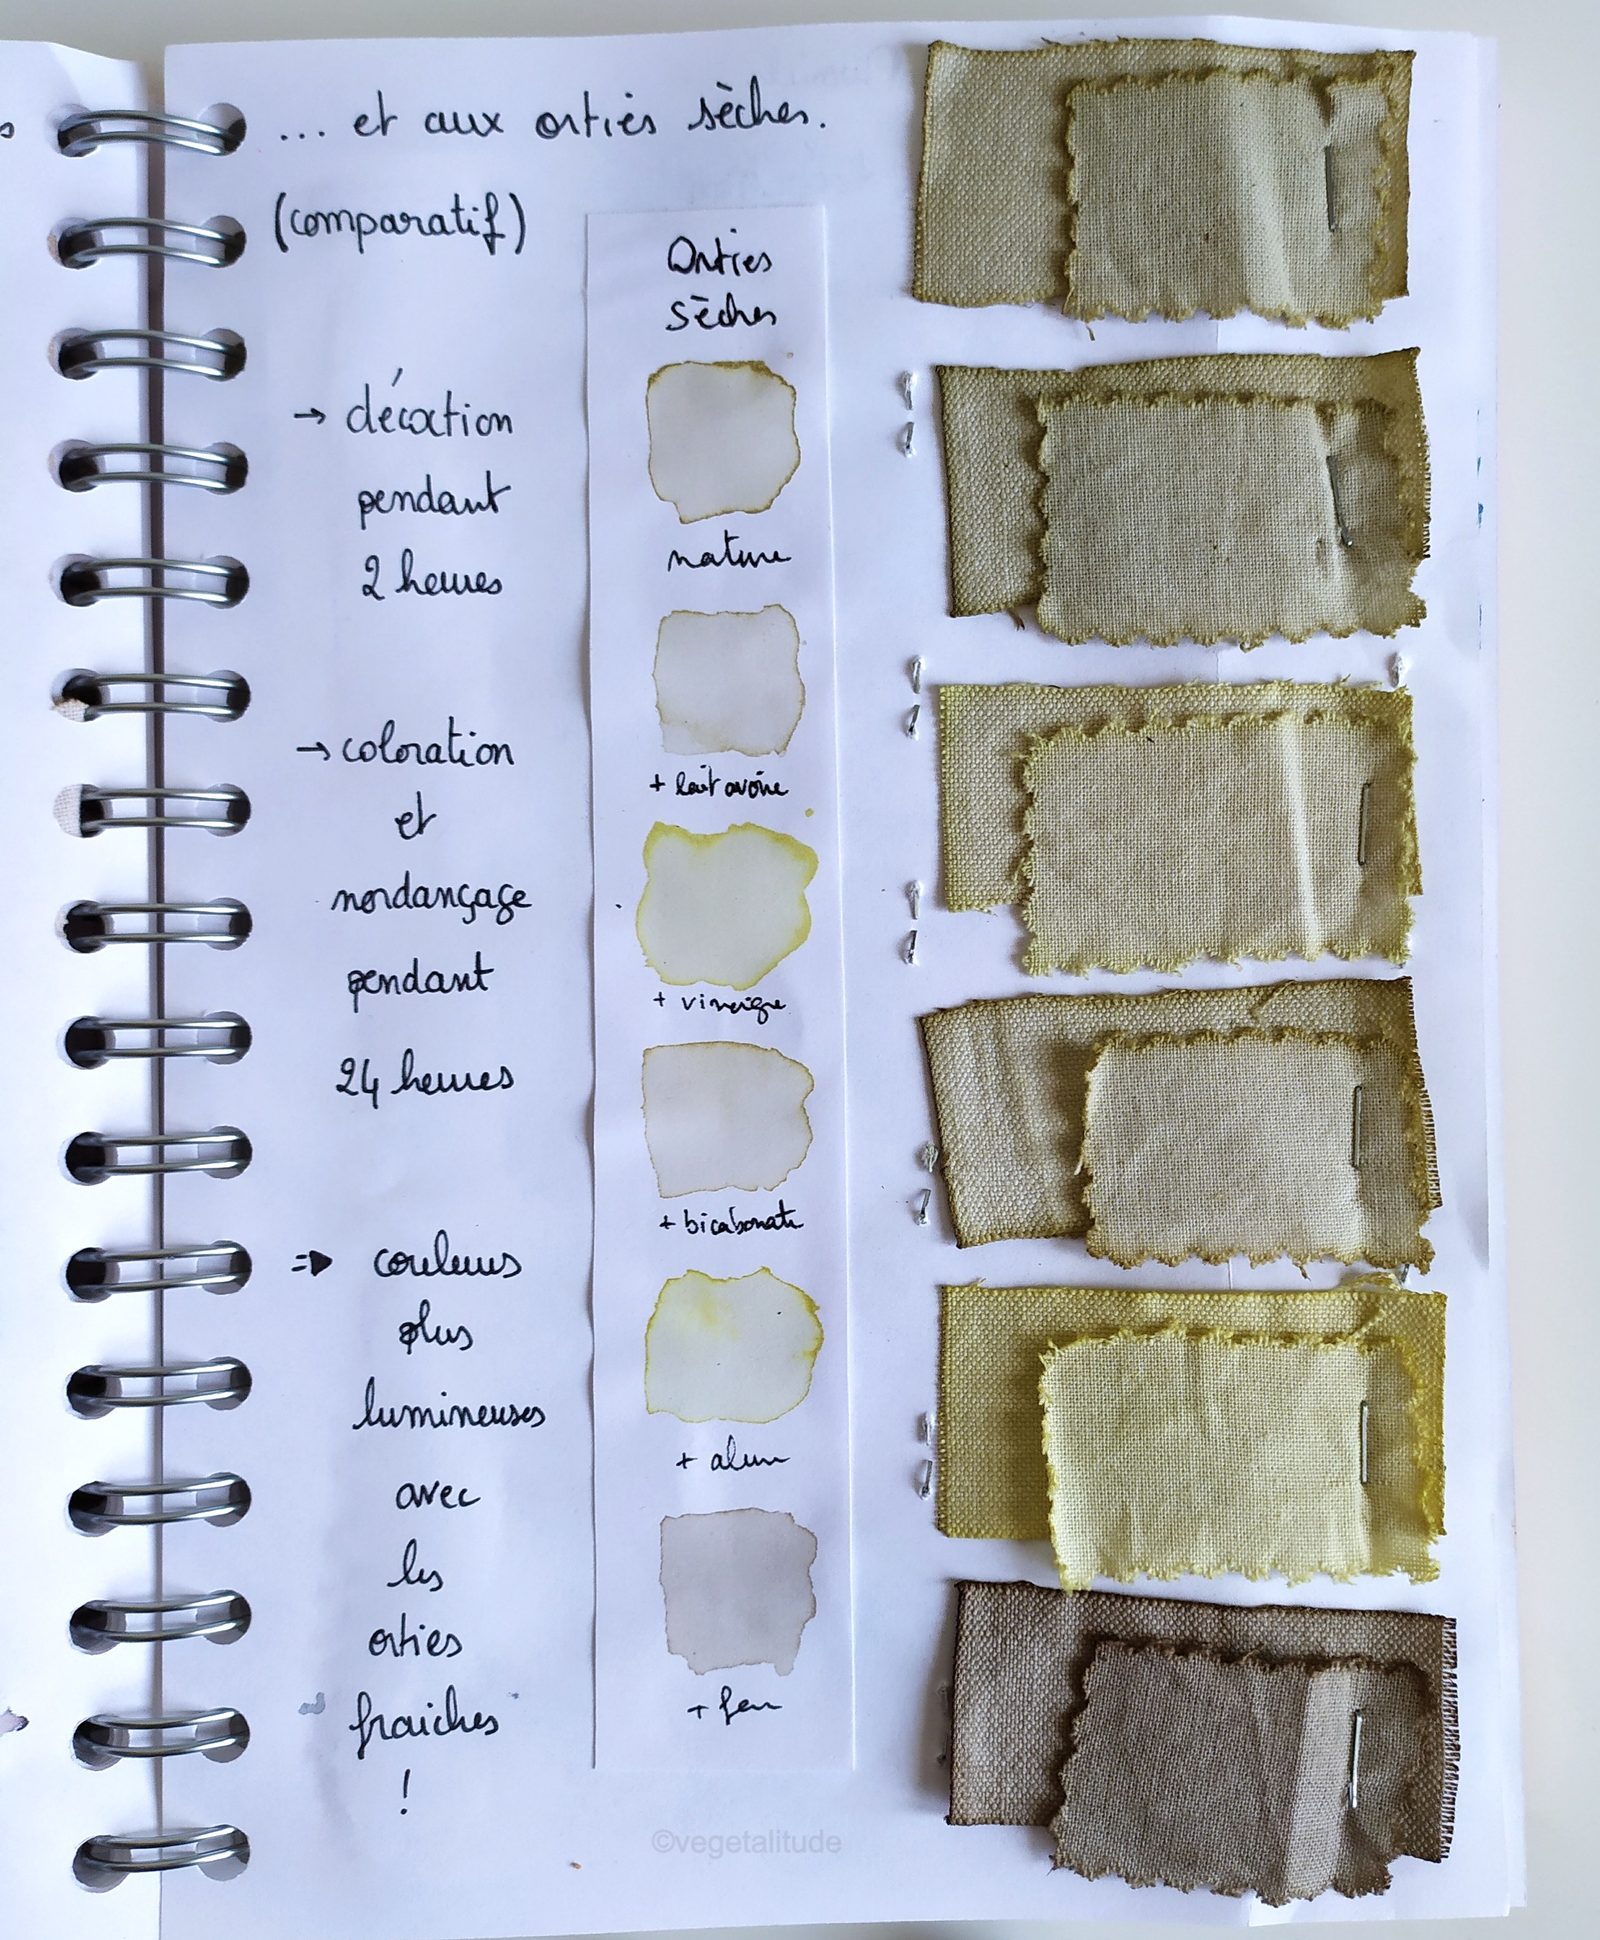 ... et aux orties sèches.
(comparatif)
→ décoction
pendant
2 heures
→ coloration
et
mordançage
pendant
24 heures
⇒ couleurs
plus
lumineuses
avec
les
orties
fraiches
!
Orties
sèches
nature
+ lait avoine
+ vinaigre
+ bicabonate
+ alun
+ fer
©vegetalitude